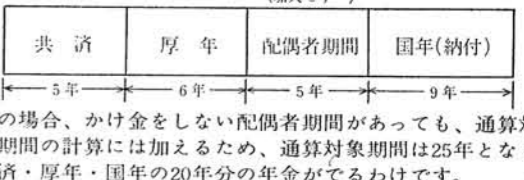 共済 厚年 配偶者期間 国年(納付)
5年 6年 5年 9年
の場合、かけ金をしない配偶者期間があっても、通算対
期間の計算には加えるため、通算対象期間は25年とな
済・厚年・国年の20年分の年金がでるわけです。